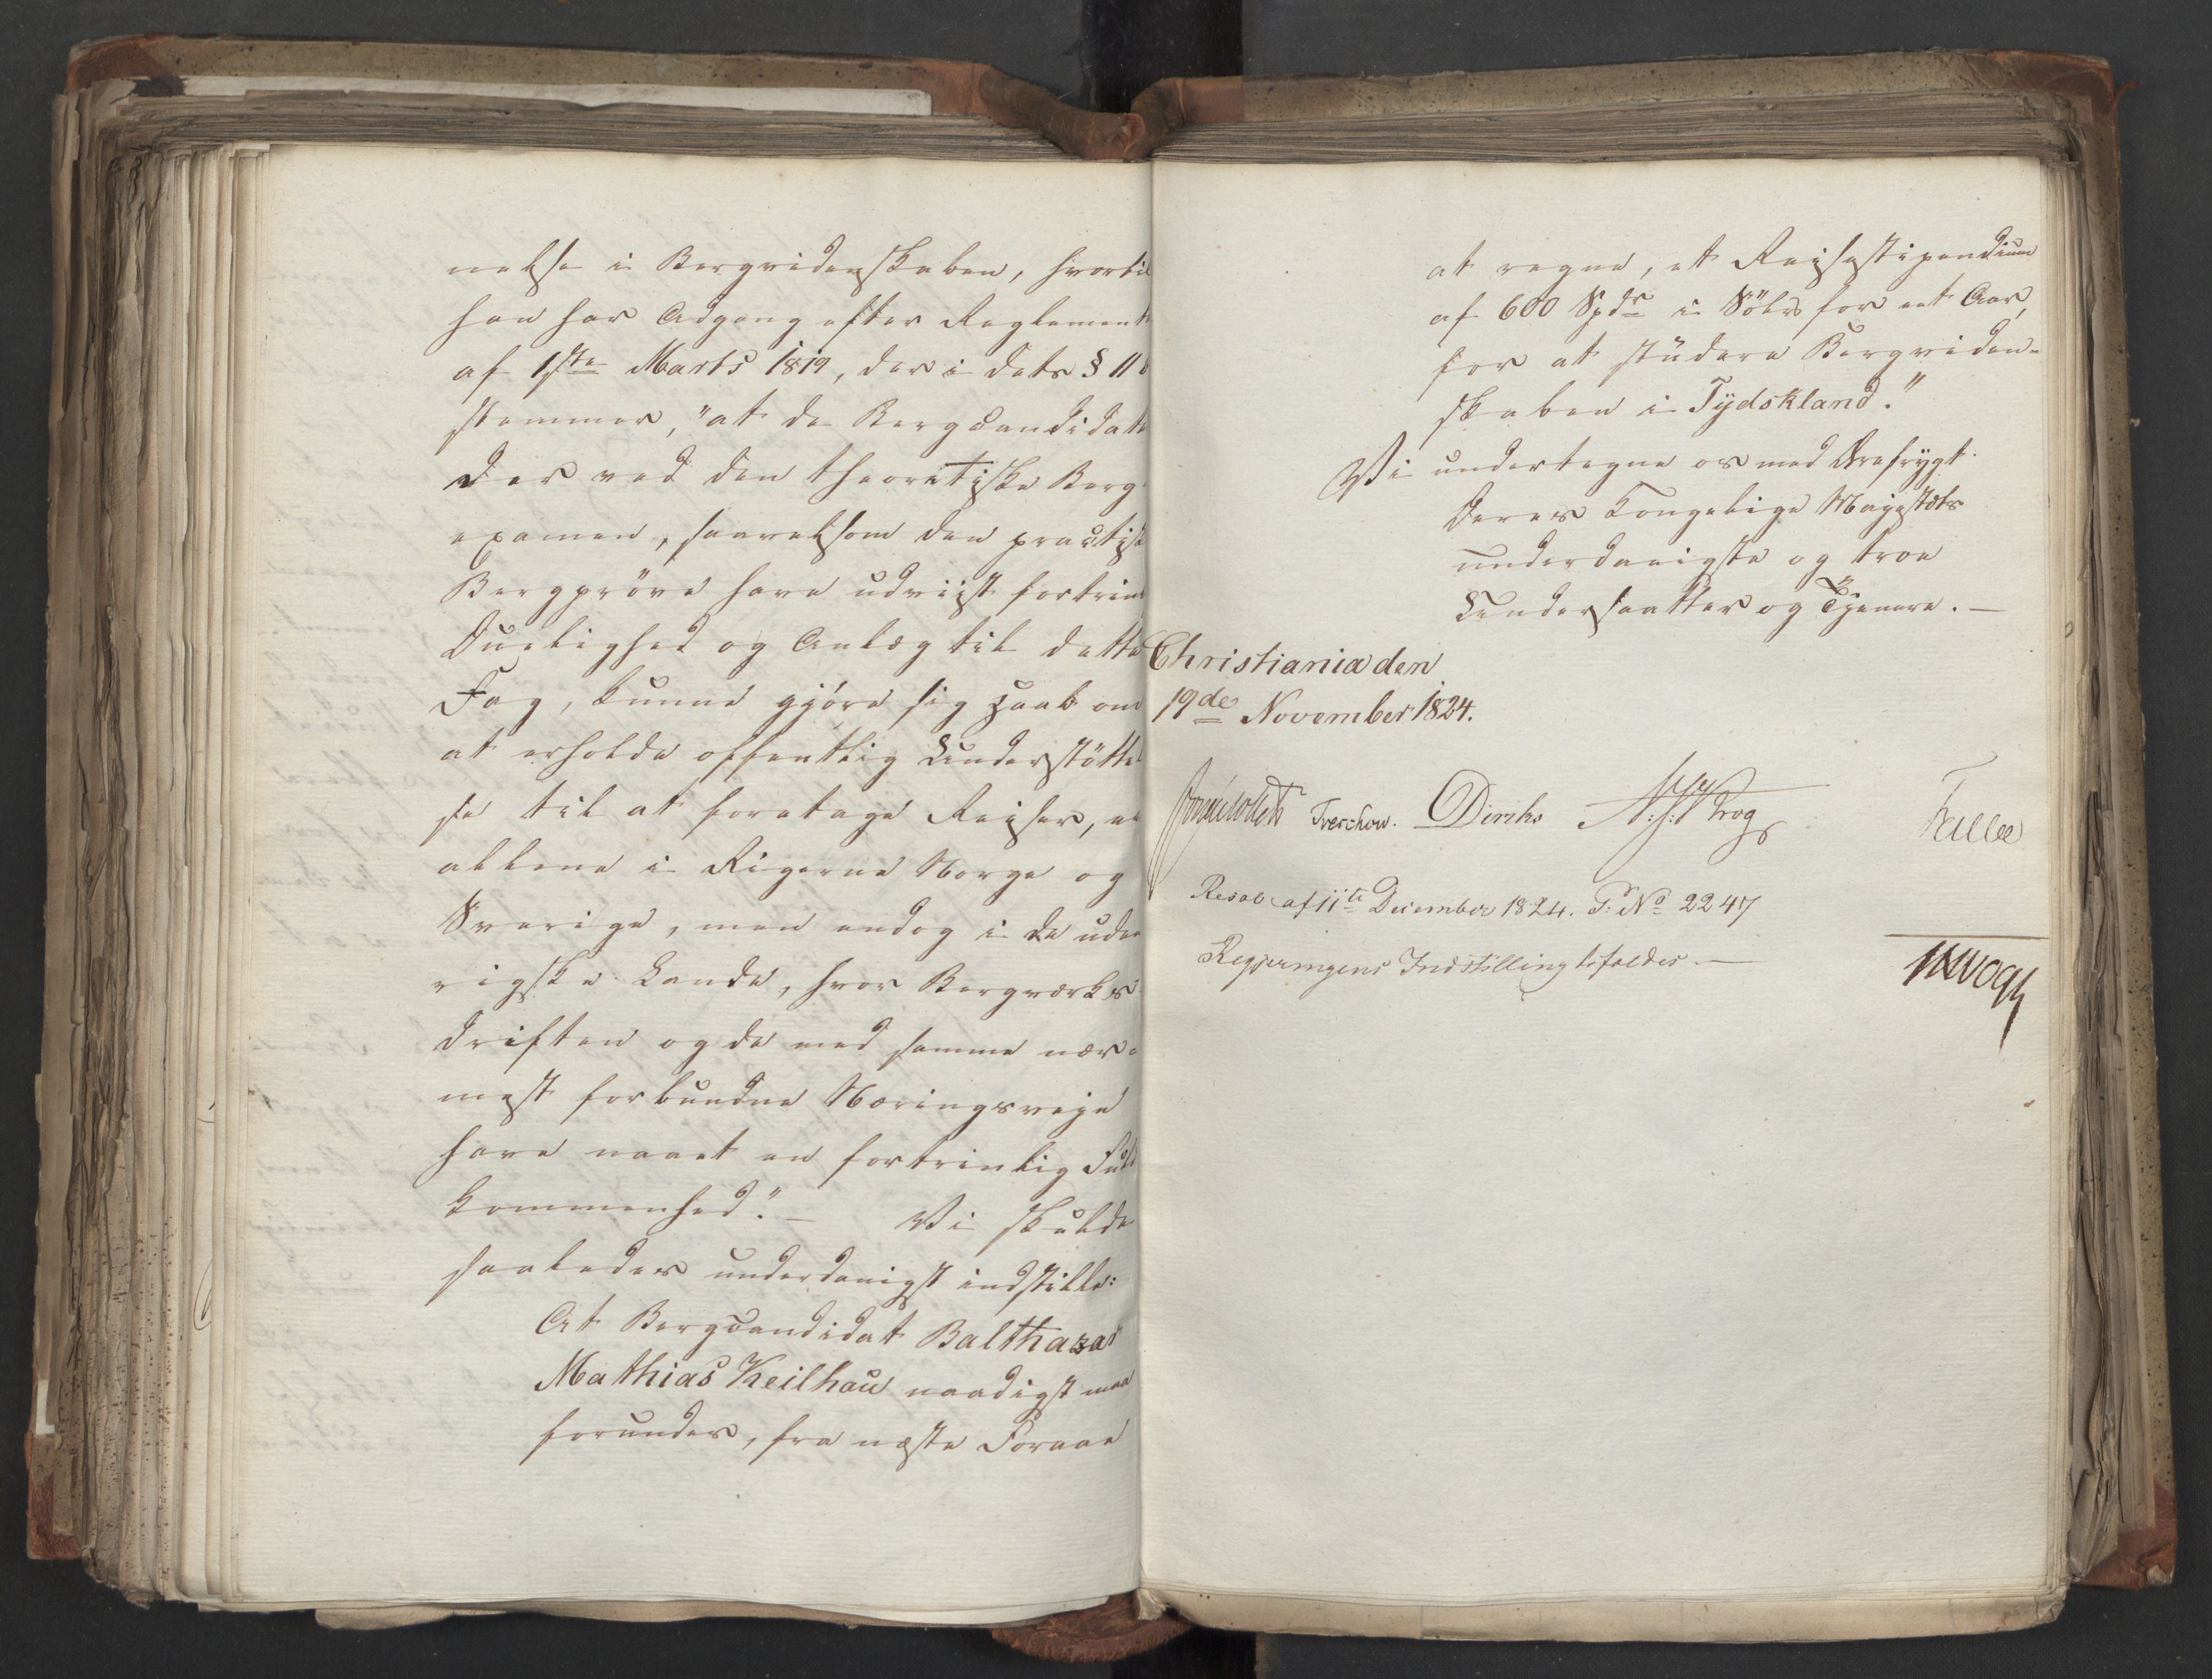 nelse i Bergvidenskaben, hvortil
han har Adgang efter Reglement
af 1ste Marts 1819, der i dets § 11 b
stemmer, "at de Bergcandidate
der ved den theoretiske Berg
examen, saavelsom den practisk
Bergpröve have udviist fortrin
Duelighed og Anlæg til dette
Fag, kunne gjöre sig Haab om
at erholde offentlig Understöttel
se til at foretage Reiser, ei
allene i Rigerne Norge og
Sverige, men endog i de uden
rigske Lande, hvor Bergværks
driften og de med samme nær-
mest forbundne Næringsveje
have naaet en fortrinlig Fuld
kommenhed." — Vi skulde
saaledes underdanigst indstille:
At Bergcandidat Balthazar
Mathias Keilhau naadigst maa
forundes, fra næste Foraar
at regne, et Reisestipendium
af 600 Spdr i Sölv for eet Aar,
for at studere Bergviden-
skaben i Tydskland."
Vi undertegne os med Ærefrygt
Deres Kongelige Majestæts
underdanigste og troe
Undersaatter og Tjenere. —
Christiania den
19de November 1824.
Treschow. Diriks Krog
Resol: af 11te December 1824. P: No 2247
Regjeringens Indstilling bifaldes. —